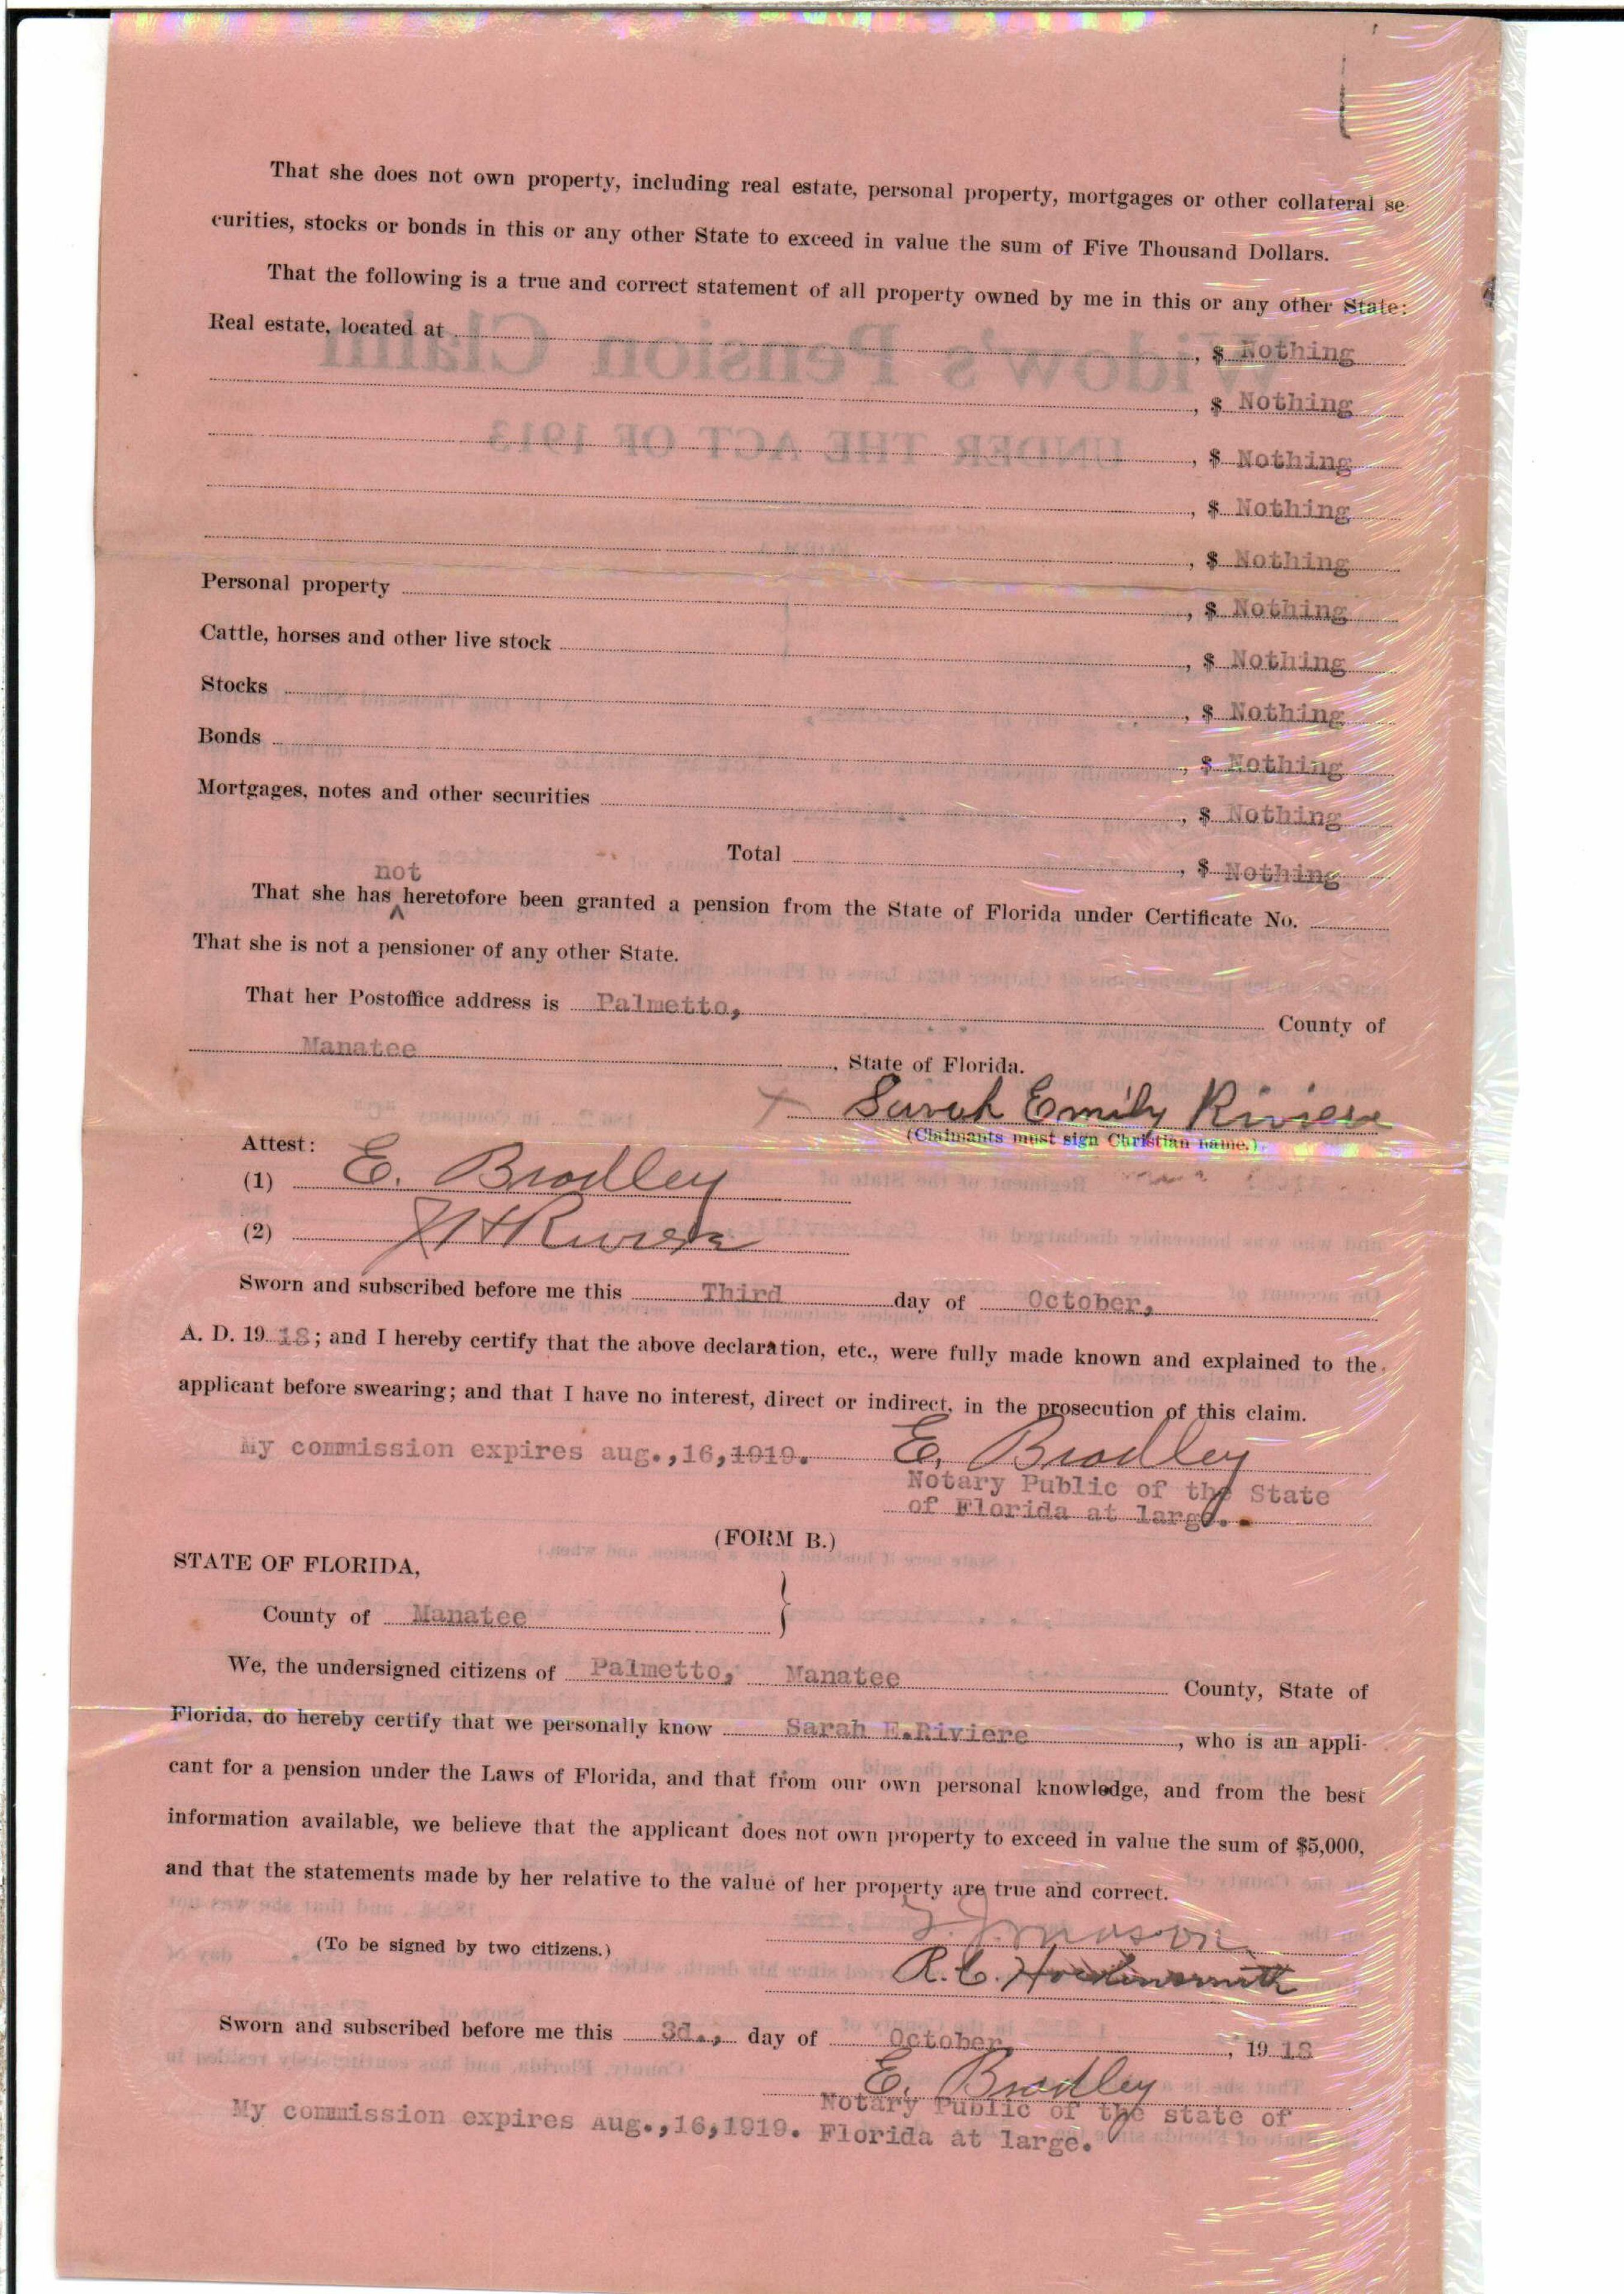 That she does not own property, including real estate, personal property, mortgages or other collateral se-
curities, stocks or bonds in this or any other State to exceed in value the sum of Five Thousand Dollars.
That the following is a true and correct statement of all property owned by me in this or any other State:
Real estate, located at , $ Nothing
, $ Nothing
, $ Nothing
, $ Nothing
, $ Nothing
Personal property , $ Nothing
Cattle, horses and other live stock , $ Nothing
Stocks , $ Nothing
Bonds , $ Nothing
Mortgages, notes and other securities , $ Nothing
Total , $ Nothing
not
That she has ^ heretofore been granted a pension from the State of Florida under Certificate No.
That she is not a pensioner of any other State.
That her Postoffice address is Palmetto, County of
Manatee , State of Florida.
x Sarah Emily Riviere
(Claimants must sign Christian name.)
Attest:
(1) E. Bradley
(2) Riviere
Sworn and subscribed before me this Third day of October,
A. D. 19 18; and I hereby certify that the above declaration, etc., were fully made known and explained to the
applicant before swearing; and that I have no interest, direct or indirect, in the prosecution of this claim.
My commission expires aug.,16,1919. E. Bradley
Notary Public of the State
of Florida at large.
(FORM B.)
STATE OF FLORIDA,
County of Manatee }
We, the undersigned citizens of Palmetto, Manatee County, State of
Florida, do hereby certify that we personally know Sarah E.Riviere , who is an appli-
cant for a pension under the Laws of Florida, and that from our own personal knowledge, and from the best
information available, we believe that the applicant does not own property to exceed in value the sum of $5,000,
and that the statements made by her relative to the value of her property are true and correct.
(To be signed by two citizens.)
R. C.
Sworn and subscribed before me this 3d., day of October, , 19 18
E. Bradley
My commission expires Aug.,16,1919. Notary Public of the state of
Florida at large.